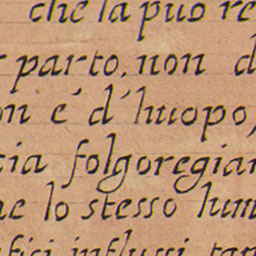 che la può re
parto, non d
on é d'huopo,
cia folgoregian
ne lo stesso lum
fici influssi tan